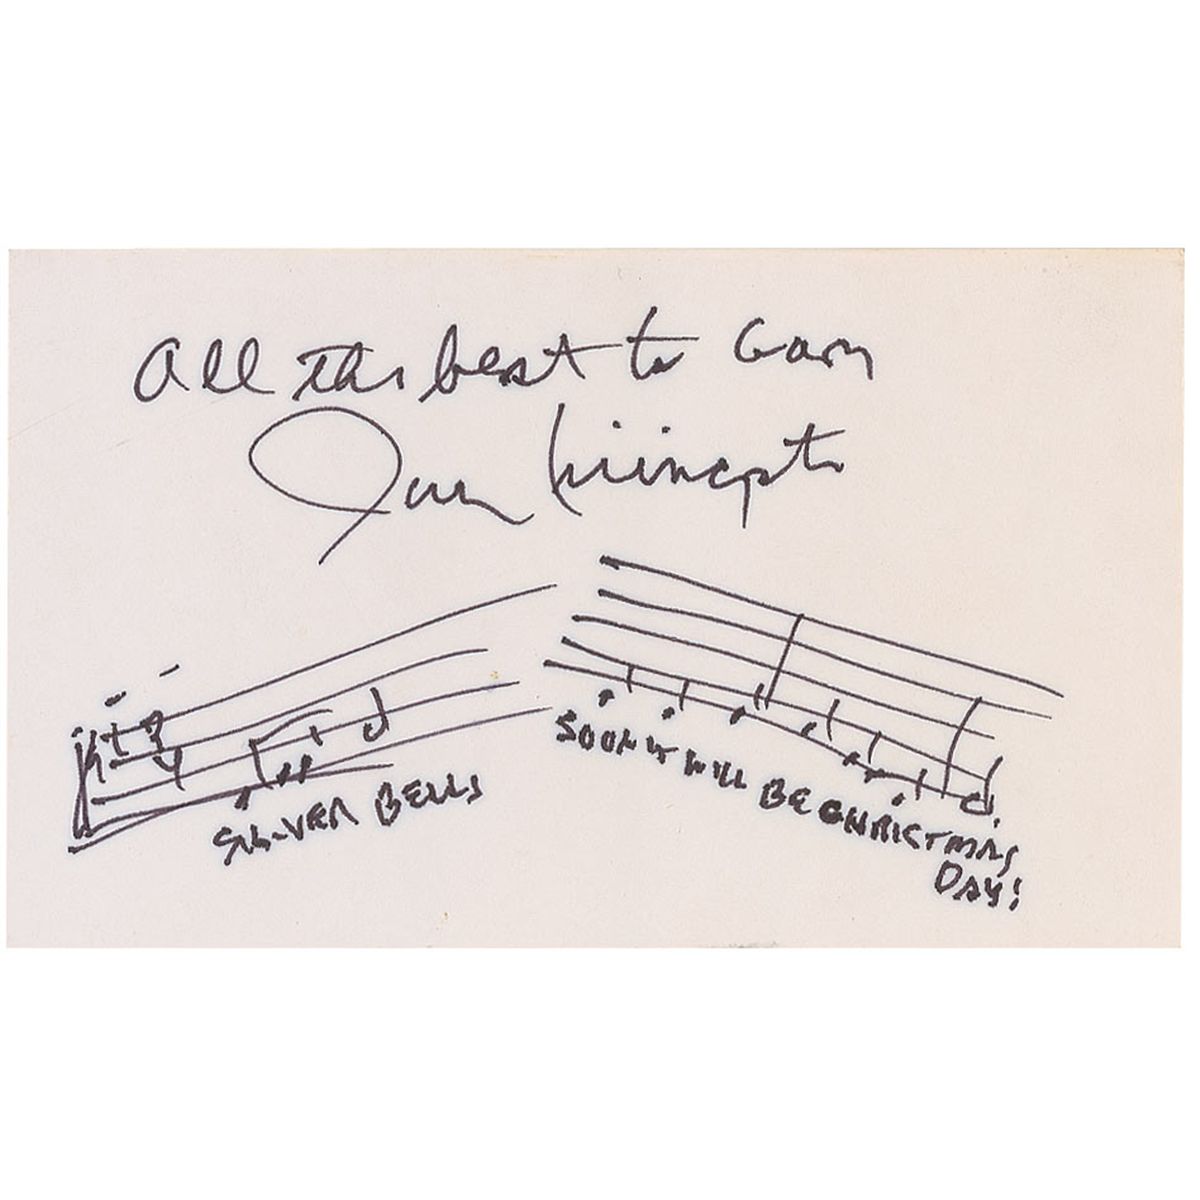 All the best to Gary
Jay Livingston
SIL-VER BELLS
SOON IT WILL BE CHRISTMAS
DAY!